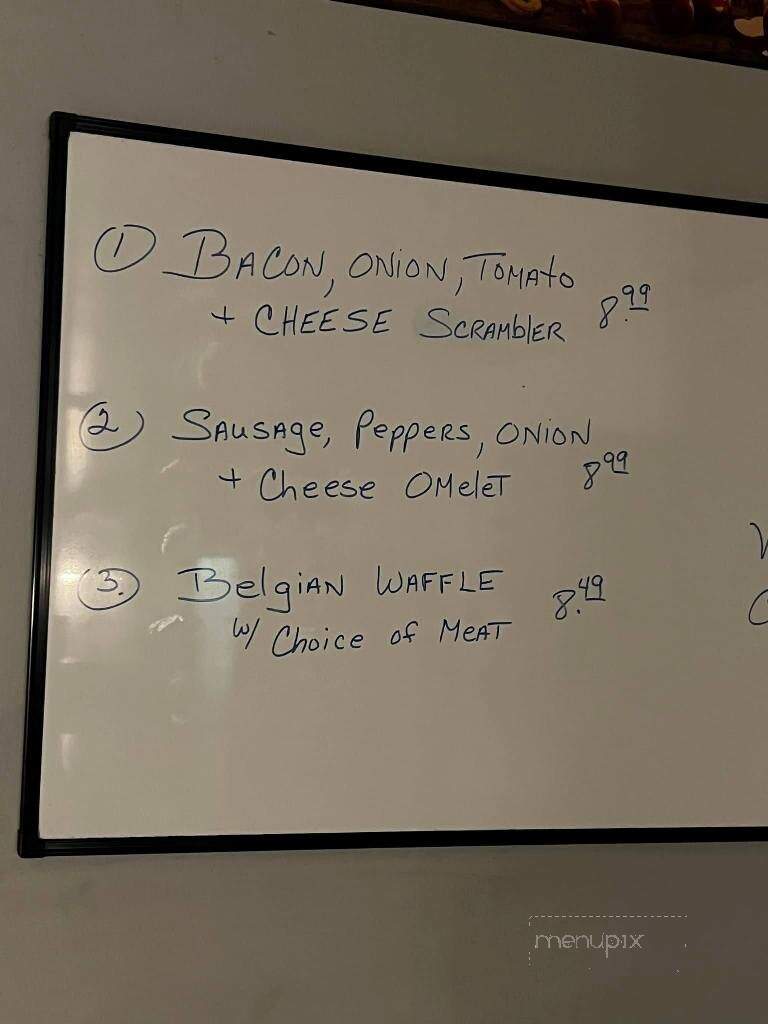 ① BACON, ONION, TOMATO
+ CHEESE SCRAMBLER 8.99
② SAUSAGE, PEPPERS, ONION
+ Cheese OMELET 8.99
③. Belgian WAFFLE 8.49
w/ Choice of MEAT
menupix